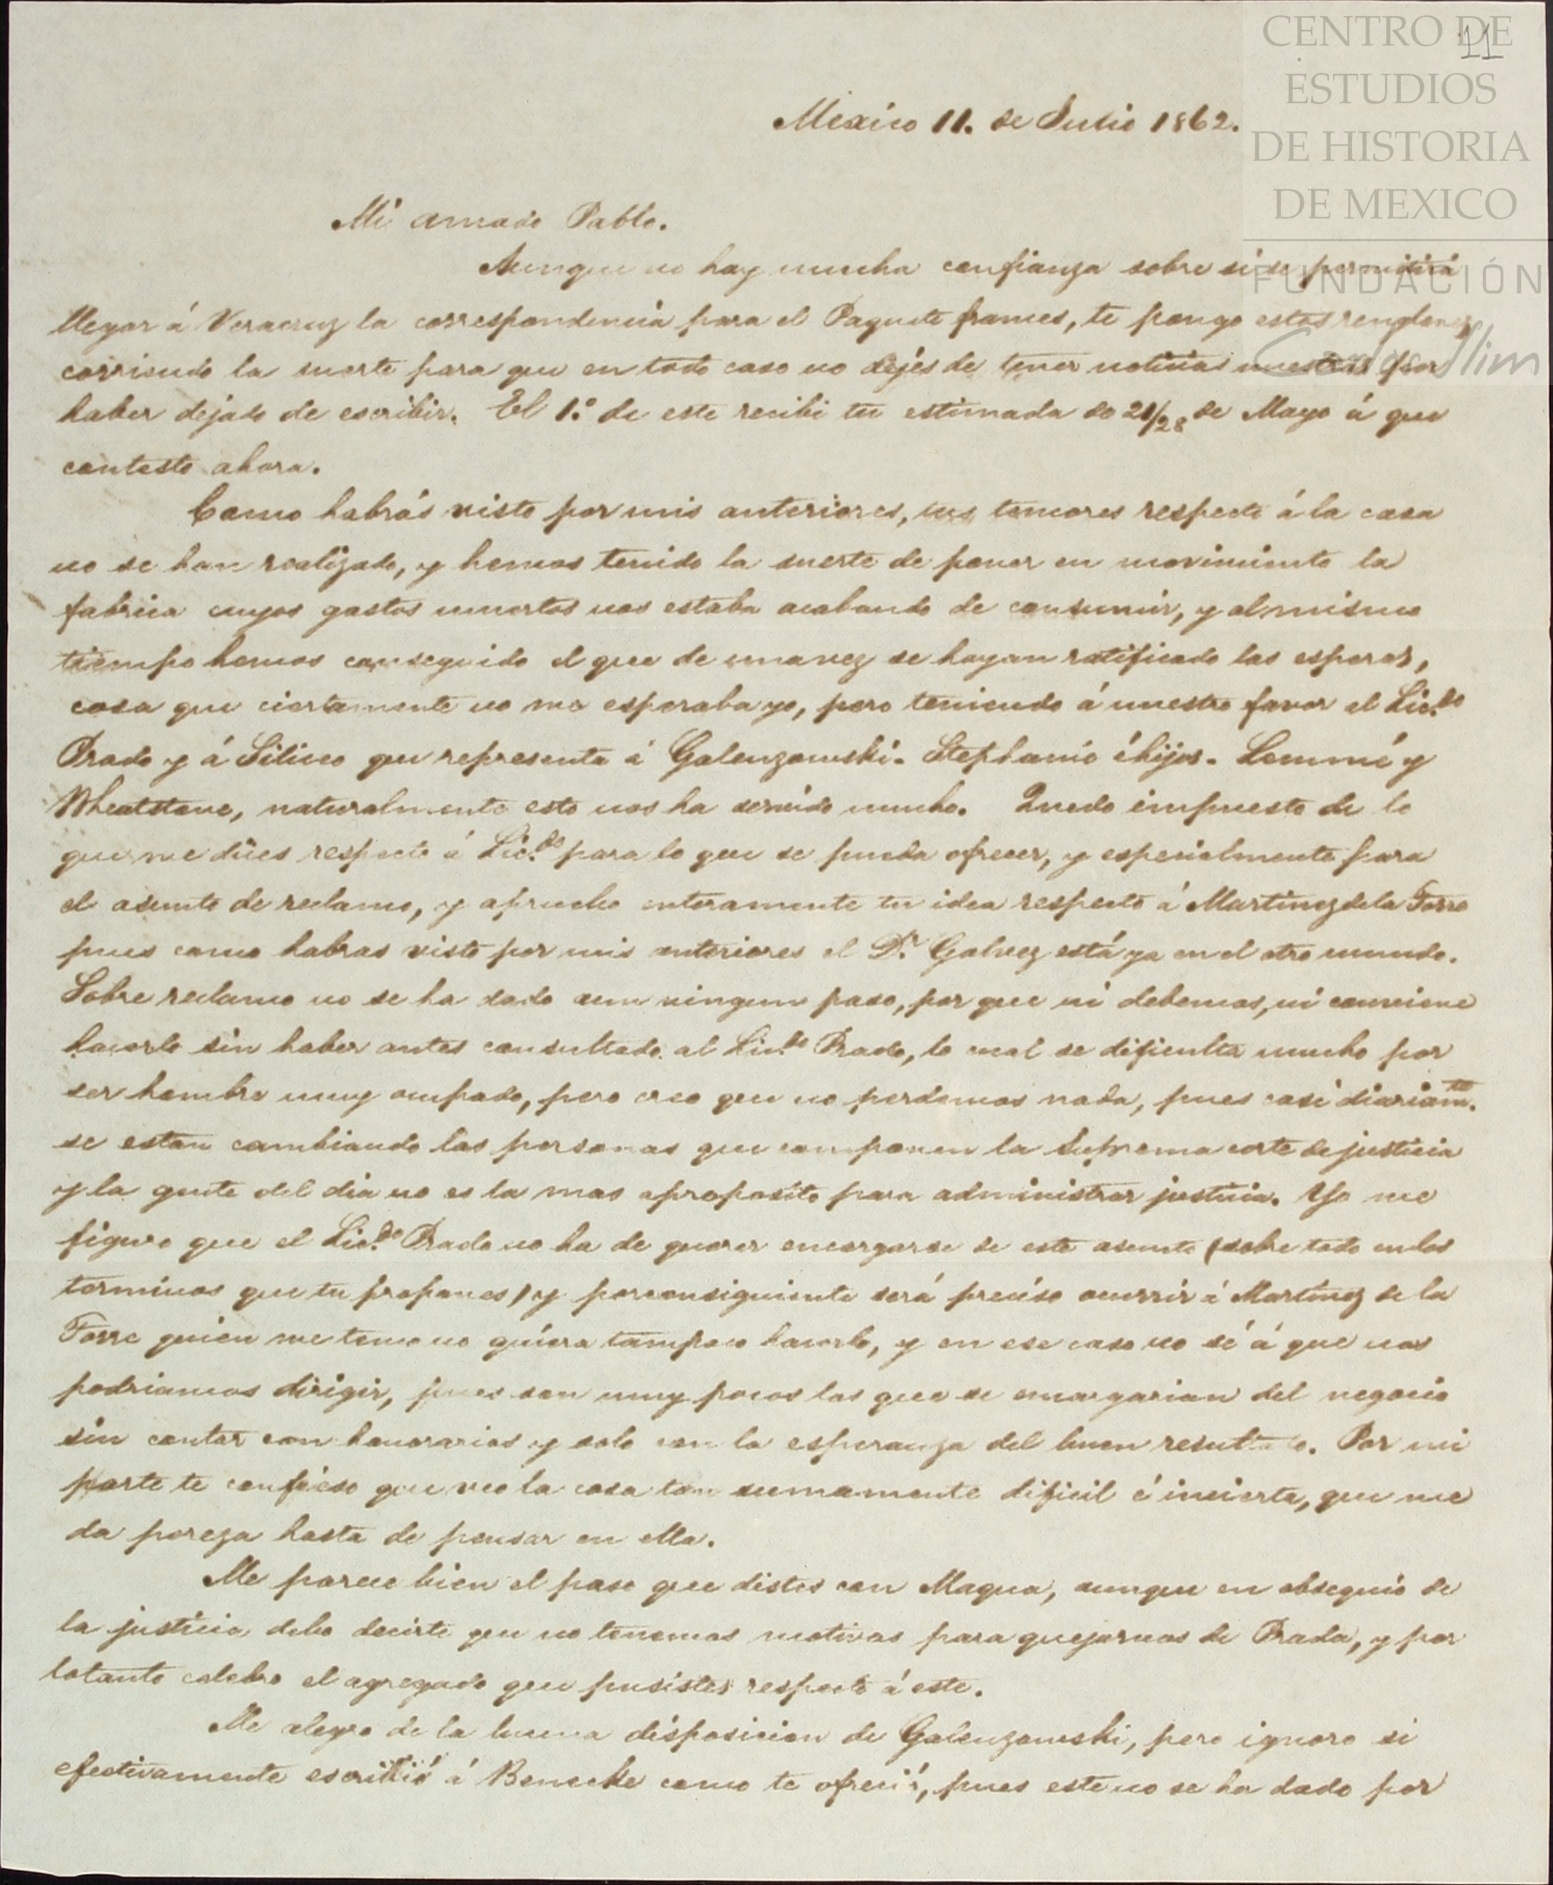 CENTRO DE
ESTUDIOS
DE HISTORIA
DE MEXICO
FUNDACIÓN
Carlos Slim
11
Mexico 11. de Julio 1862.
Mi amado Pablo.
Aunque no hay mucha confianza sobre si se permitirá
llegar á Veracruz la correspondencia para el Paquete frances, te pongo estos renglones
corriendo la suerte para que en todo caso no dejes de tener noticias nuestras por
haber dejado de escribir. El 1.º de este recibi tu estimada de 21/28 de Mayo á que
contesto ahora.
Como habrás visto por mis anteriores, tus temores respecto á la casa
no se han realizado, y hemos tenido la suerte de poner en movimiento la
fabrica cuyos gastos muertos nos estaba acabando de consumir, y al mismo
tiempo hemos conseguido el que de una vez se hayan ratificado las esperas,
cosa que ciertamente no me esperaba yo, pero teniendo á nuestro favor al Lic.do
Prado y á Siliceo que representa á Galenzowski. Stephanie é hijos. Lemmé y
Wheatstone, naturalmente esto nos ha servido mucho. Quedo impuesto de lo
que me dices respecto á Lic.do para lo que se pueda ofrecer, y especialmente para
el asunto de reclamo, y apruebo enteramente tu idea respecto á Martinez de la Torre
pues como habras visto por mis anteriores el D.r Galvez está ya en el otro mundo.
Sobre reclamo no se ha dado aun ningun paso, por que ni debemos, ni conviene
hacerlo sin haber antes consultado al Lic.do Prado, lo cual se dificulta mucho por
ser hombre muy ocupado, pero creo que no perdemos nada, pues casi diariam.te
se estan cambiando las personas que componen la Suprema corte de justicia
y la gente del dia no es la mas aproposito para administrar justicia. Yo me
figuro que el Lic.do Prado no ha de querer encargarse de este asunto (sobre todo en los
terminos que tu propones) y por consiguiente será preciso ocurrir á Martinez de la
Torre quien me temo no quiera tampoco hacerlo, y en ese caso no sé á que nos
podriamos dirigir, pues son muy pocos los que se encargarian del negocio
sin contar con honorarios y solo con la esperanza del buen resultado. Por mi
parte te confieso que veo la cosa tan sumamente dificil é incierta, que me
da pereza hasta de pensar en ella.
Me parece bien el paso que distes con Magua, aunque en obsequio de
la justicia debo decirte que no tenemos motivos para quejarnos de Prada, y por
lo tanto celebro el agregado que pusistes respecto á este.
Me alegro de la buena disposicion de Galenzowski, pero ignoro si
efectivamente escribió á Benecke como te ofreció, pues este no se ha dado por